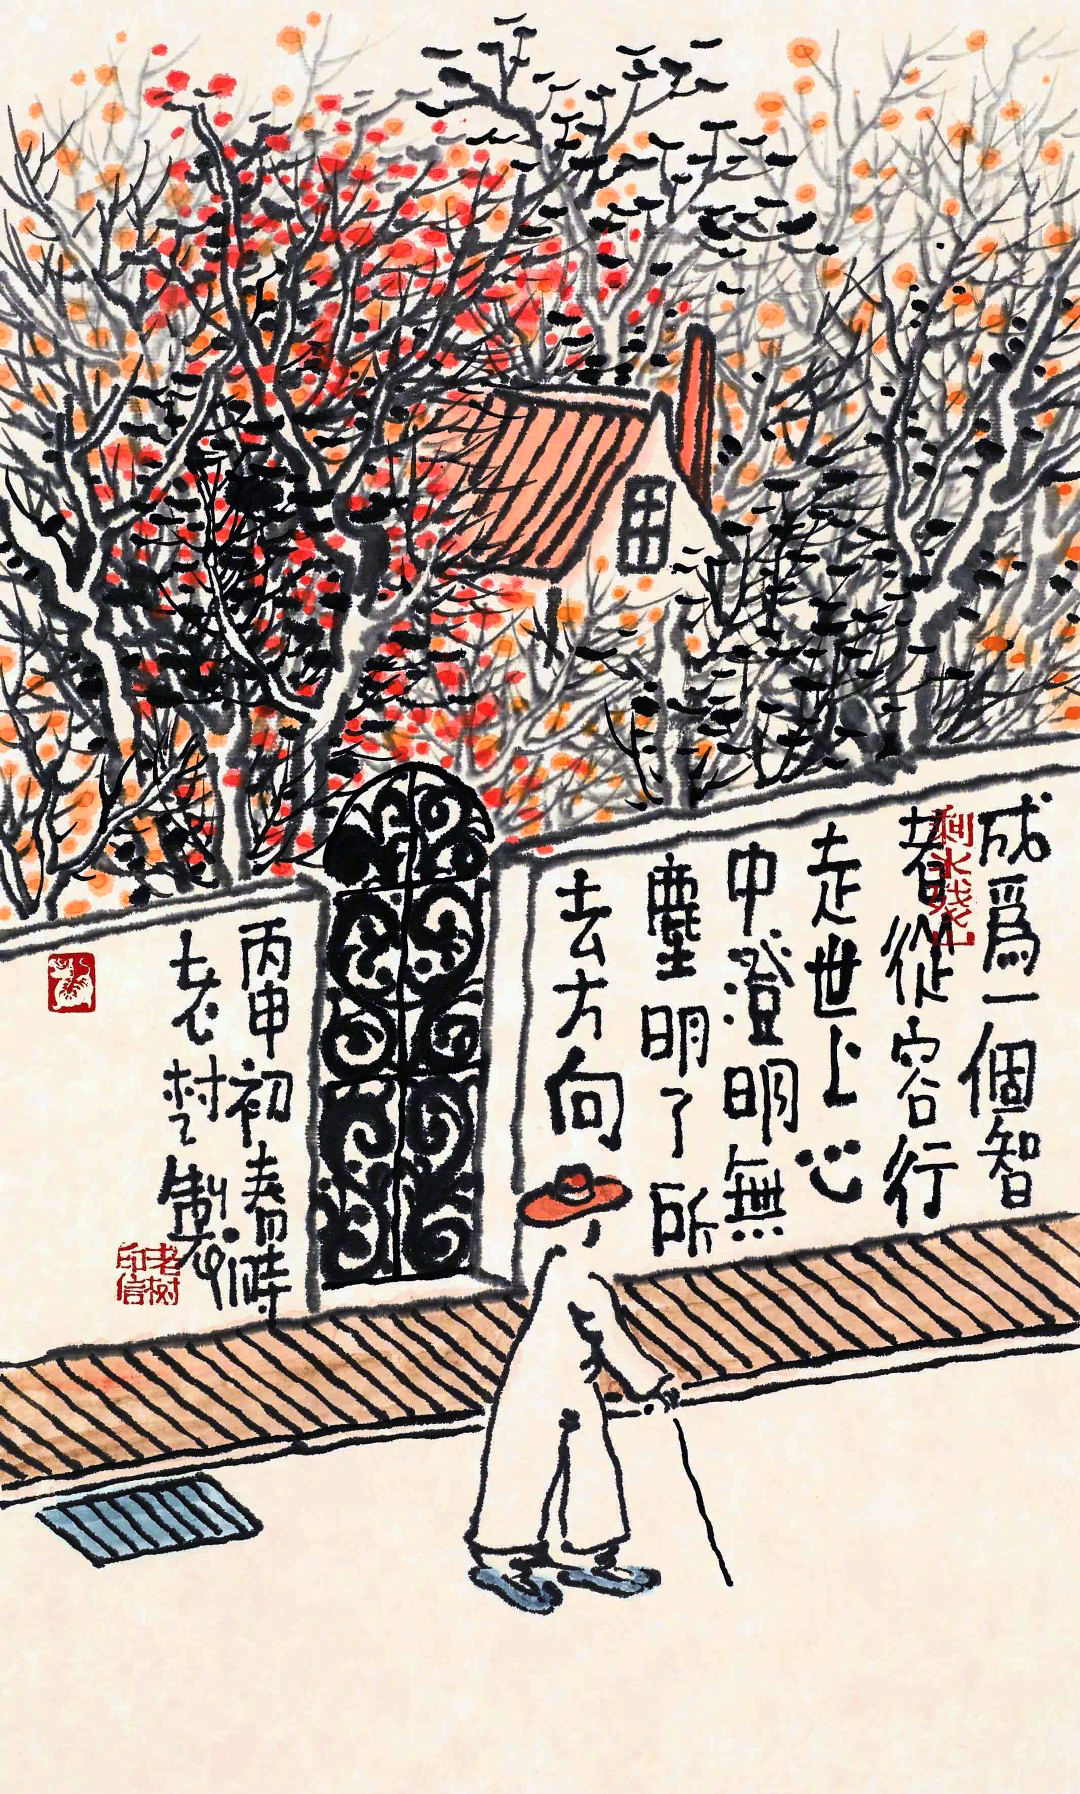 成爲一個智
者從容行
走世上心
中澄明無
塵明了所
去方向
丙申初春時
老樹製
剩水殘山
老树
印信